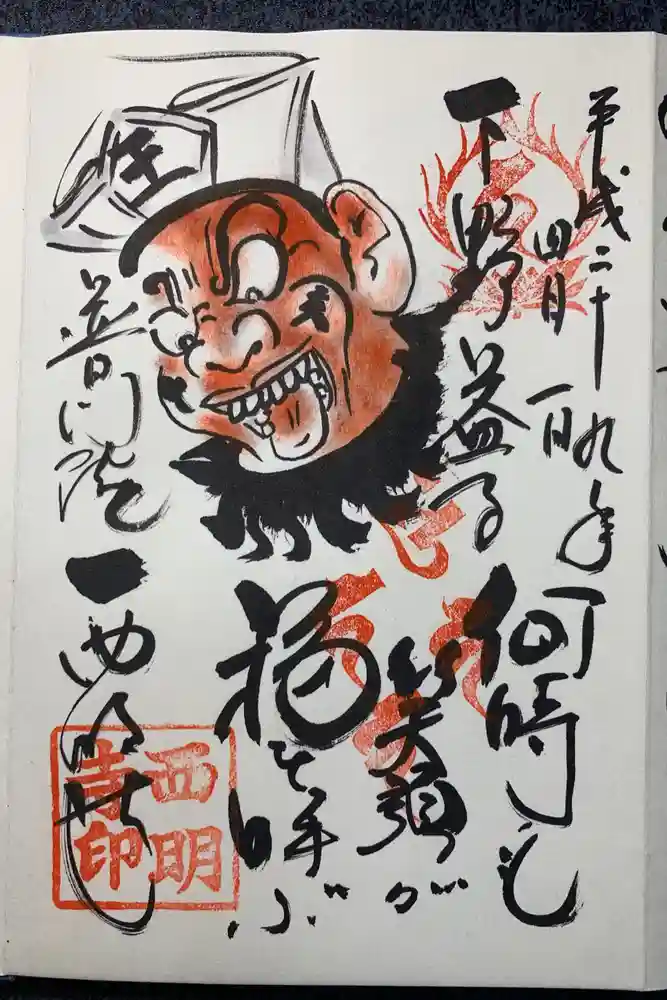 平成二十九年
四月一日
下野 益子
何時も
笑顔が
福を呼ぶ
普門院
西明寺
西明
寺印